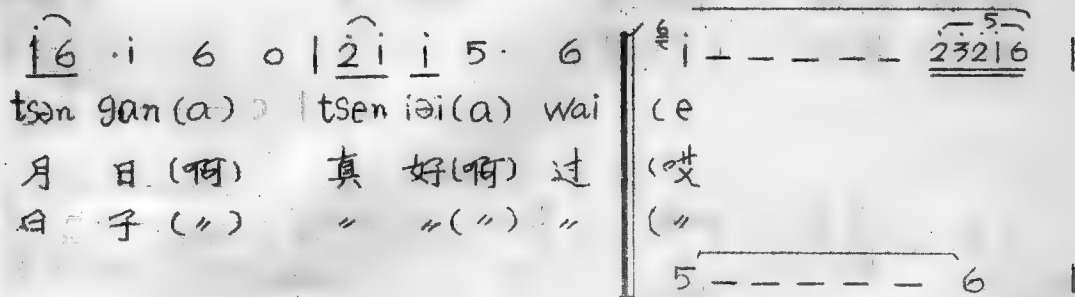 i̇6 ·i̇ 6 0 | 2̇i̇ i̇ 5· 6 ‖ i̇ – – – – – 2̇3̇2̇i̇6 5 |
tsən gan (a) tsen iəi(a) wai (e
月 日 (啊) 真 好(啊) 过 (哎
日 子 (〃) 〃 〃(〃) 〃 (〃
5 – – – – – 6 |